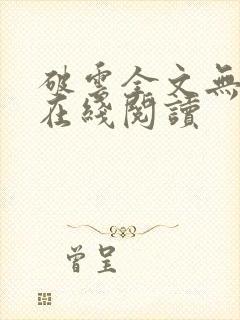 破雲全文無
在綫閱讀
曾呈